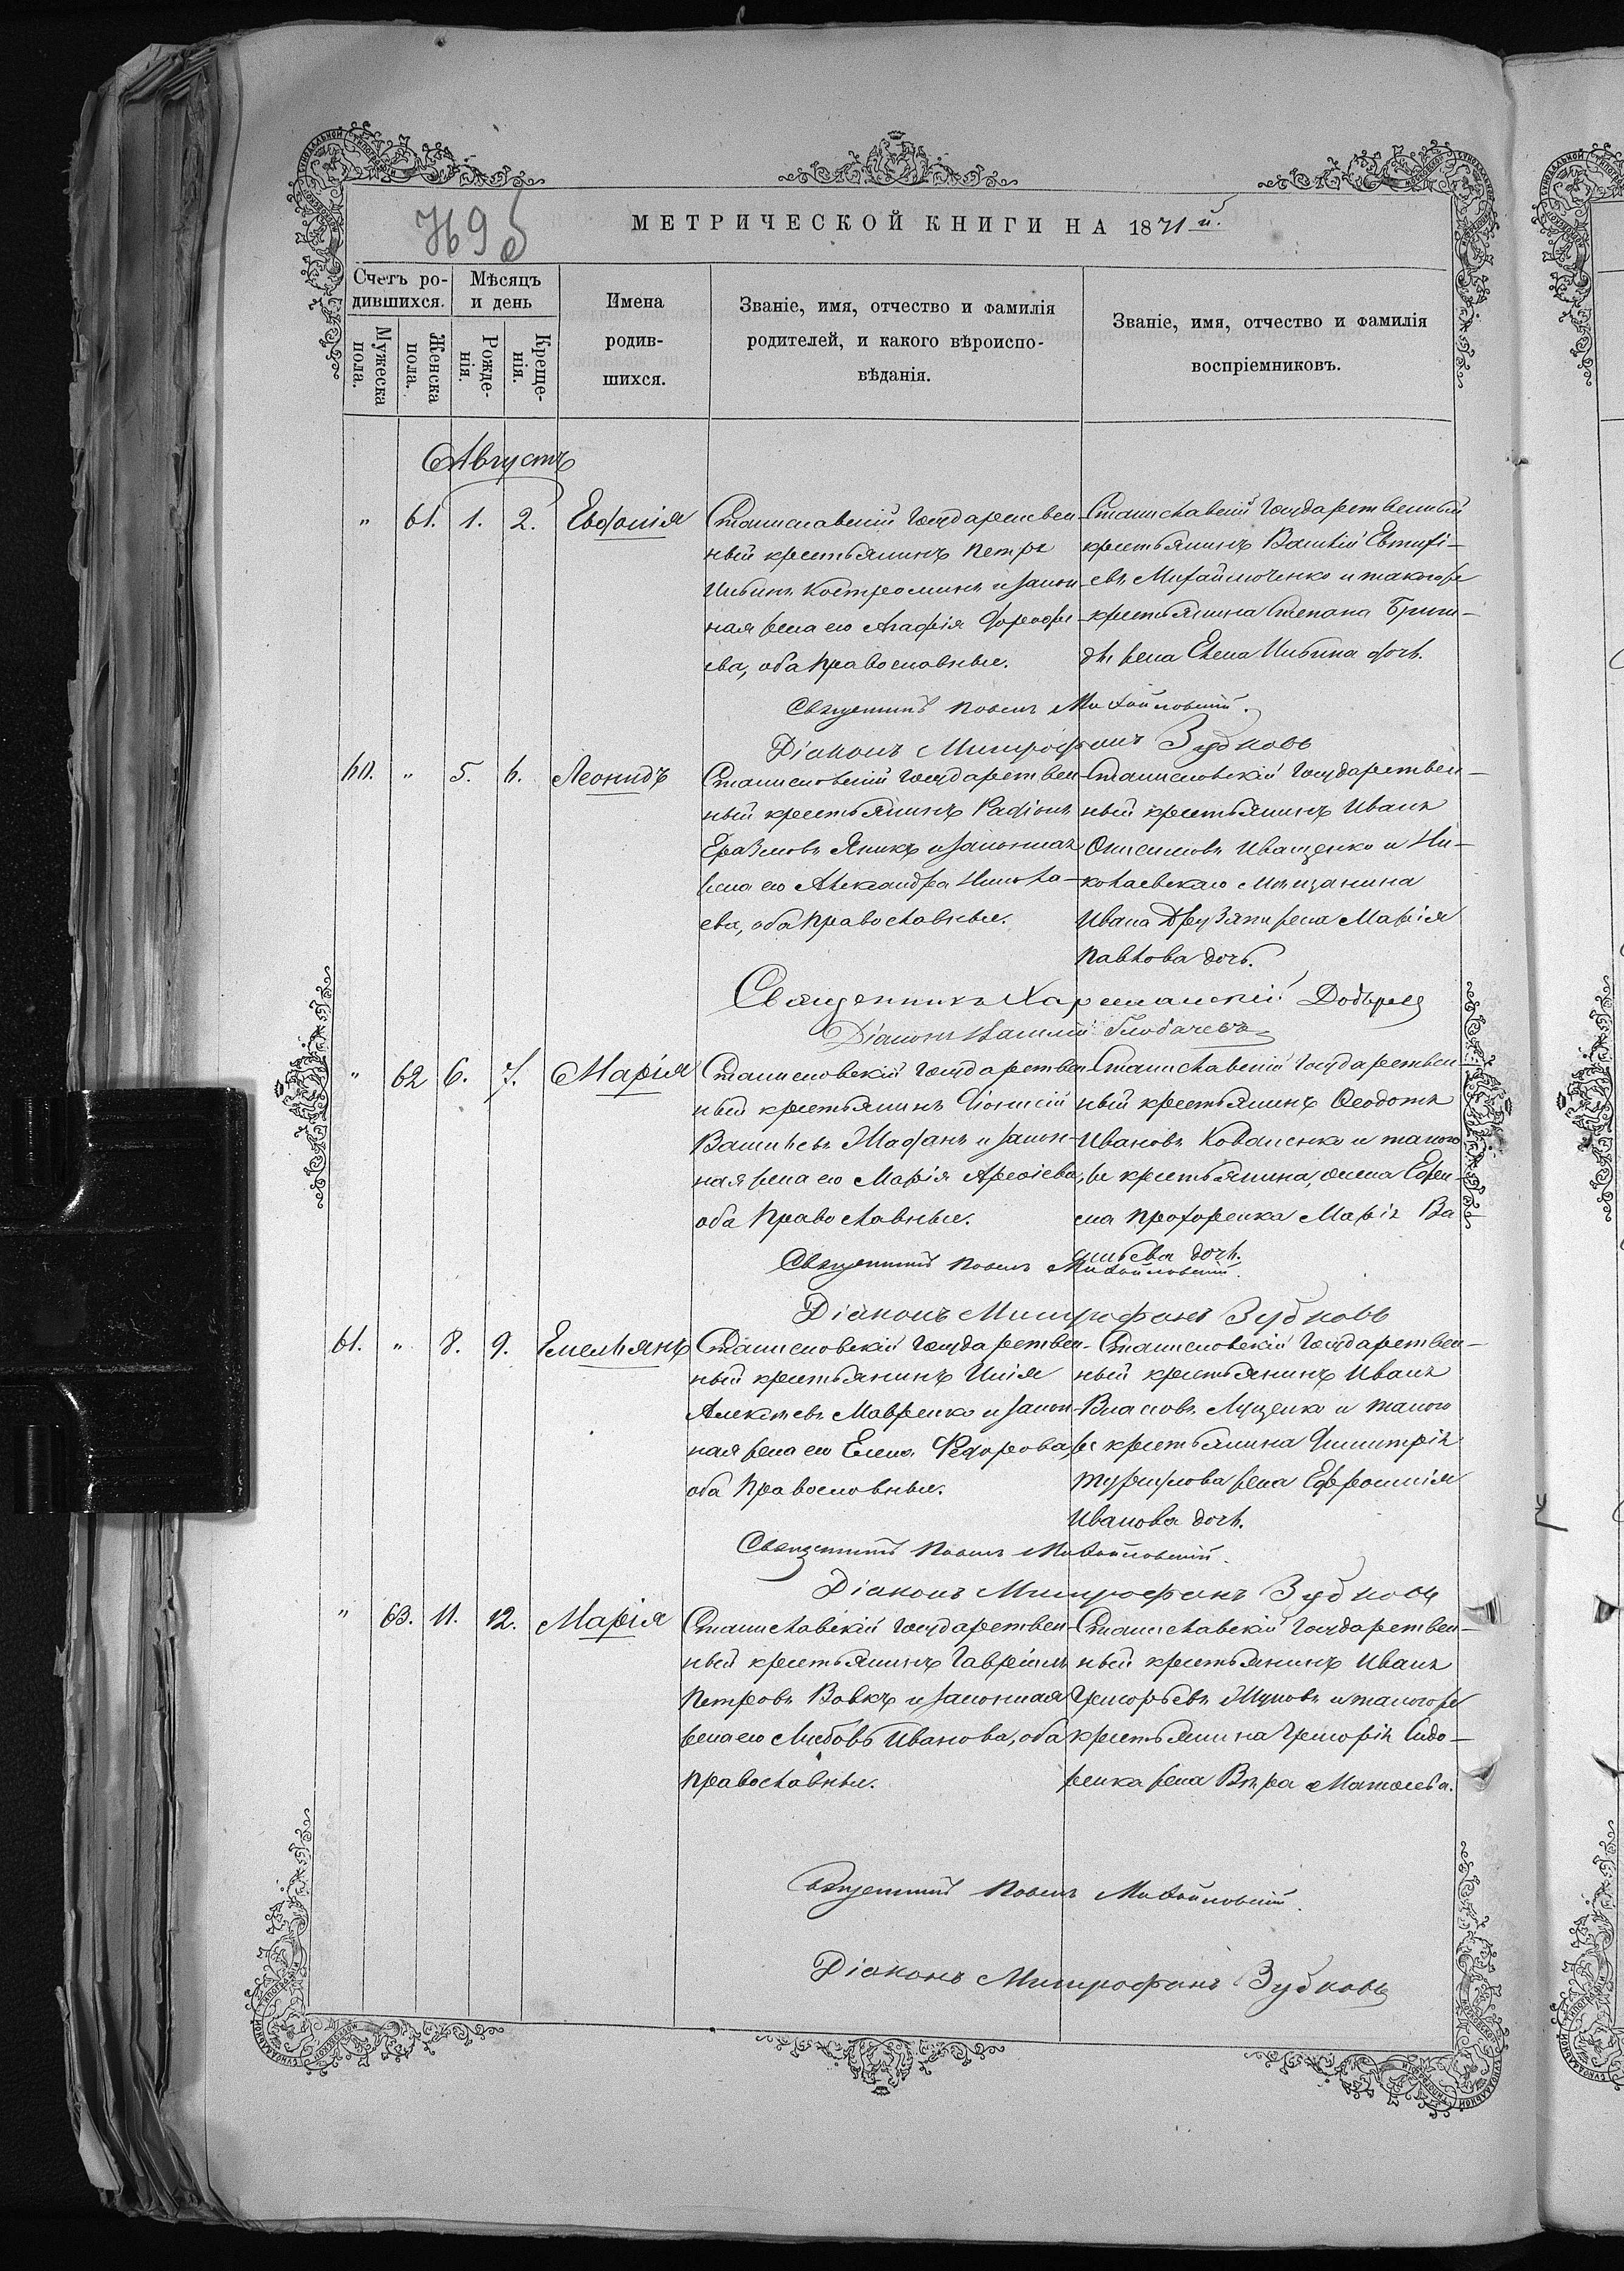 МЕТРИЧЕСКОЙ КНИГИ НА 1871 й.
Счетъ родившихся.
Мѣсяцъ и день
Имена родившихся.
Званіе, имя, отчество и фамилія родителей, и какого вѣроисповѣданія.
Званіе, имя, отчество и фамилія воспріемниковъ.
Мужеска пола.
Женска пола.
Рожденія.
Крещенія.
Августъ
" 61. 1. 2. Евфимія
Станиславскій государствен-
ный крестьянинъ Петръ
Костроминъ и закон-
ная жена его Агафія
ева, оба православные.
Станиславскій государственный
крестьянинъ Василій Евтифі-
евъ Михайлюченко и такого же
крестьянина Степана
жена Елена дочь.
Священникъ Павелъ Михайловскій.
Діаконъ Митрофанъ Зубковъ
60. " 5. 6. Леонидъ
Станиславскій государствен-
ный крестьянинъ Радіонъ
Еразмовъ Яникъ и законная
жена его Александра Никола-
ева, оба православные.
Станиславскій государствен-
ный крестьянинъ Иванъ
Онисимовъ Иващенко и Ни-
колаевскаго мѣщанина
Ивана жена Марія
Павлова дочь.
Священникъ
Діаконъ Василій
" 62 6. 7. Марія
Станиславскій государствен-
ный крестьянинъ Діонисій
Васильевъ и закон-
ная жена его Марія
оба православные.
Станиславскій государствен-
ный крестьянинъ Ѳеодотъ
Ивановъ Коваленко и такого
же крестьянина,
Прохоренка Марія Ва
сильева дочь.
Священникъ Павелъ Михайловскій.
Діаконъ Митрофанъ Зубковъ
61. " 8. 9. Емельянъ
Станиславскій государствен-
ный крестьянинъ Илія
Алексѣевъ Мавренко и закон-
ная жена его Елена Федорова,
оба православные.
Станиславскій государствен-
ный крестьянинъ Иванъ
Власовъ Луценко и такого
же крестьянина Димитрія
жена Ефросинія
Иванова дочь.
Священникъ Павелъ Михайловскій.
Діаконъ Митрофанъ Зубковъ
" 63. 11. 12. Марія
Станиславскій государствен-
ный крестьянинъ Гавріилъ
Петровъ Вовкъ и законная
жена его Любовь Иванова, оба
православные.
Станиславскій государствен-
ный крестьянинъ Иванъ
Григорьевъ и такого же
крестьянина Григорія Сидо-
ренка жена Вѣра
Священникъ Павелъ Михайловскій.
Діаконъ Митрофанъ Зубковъ